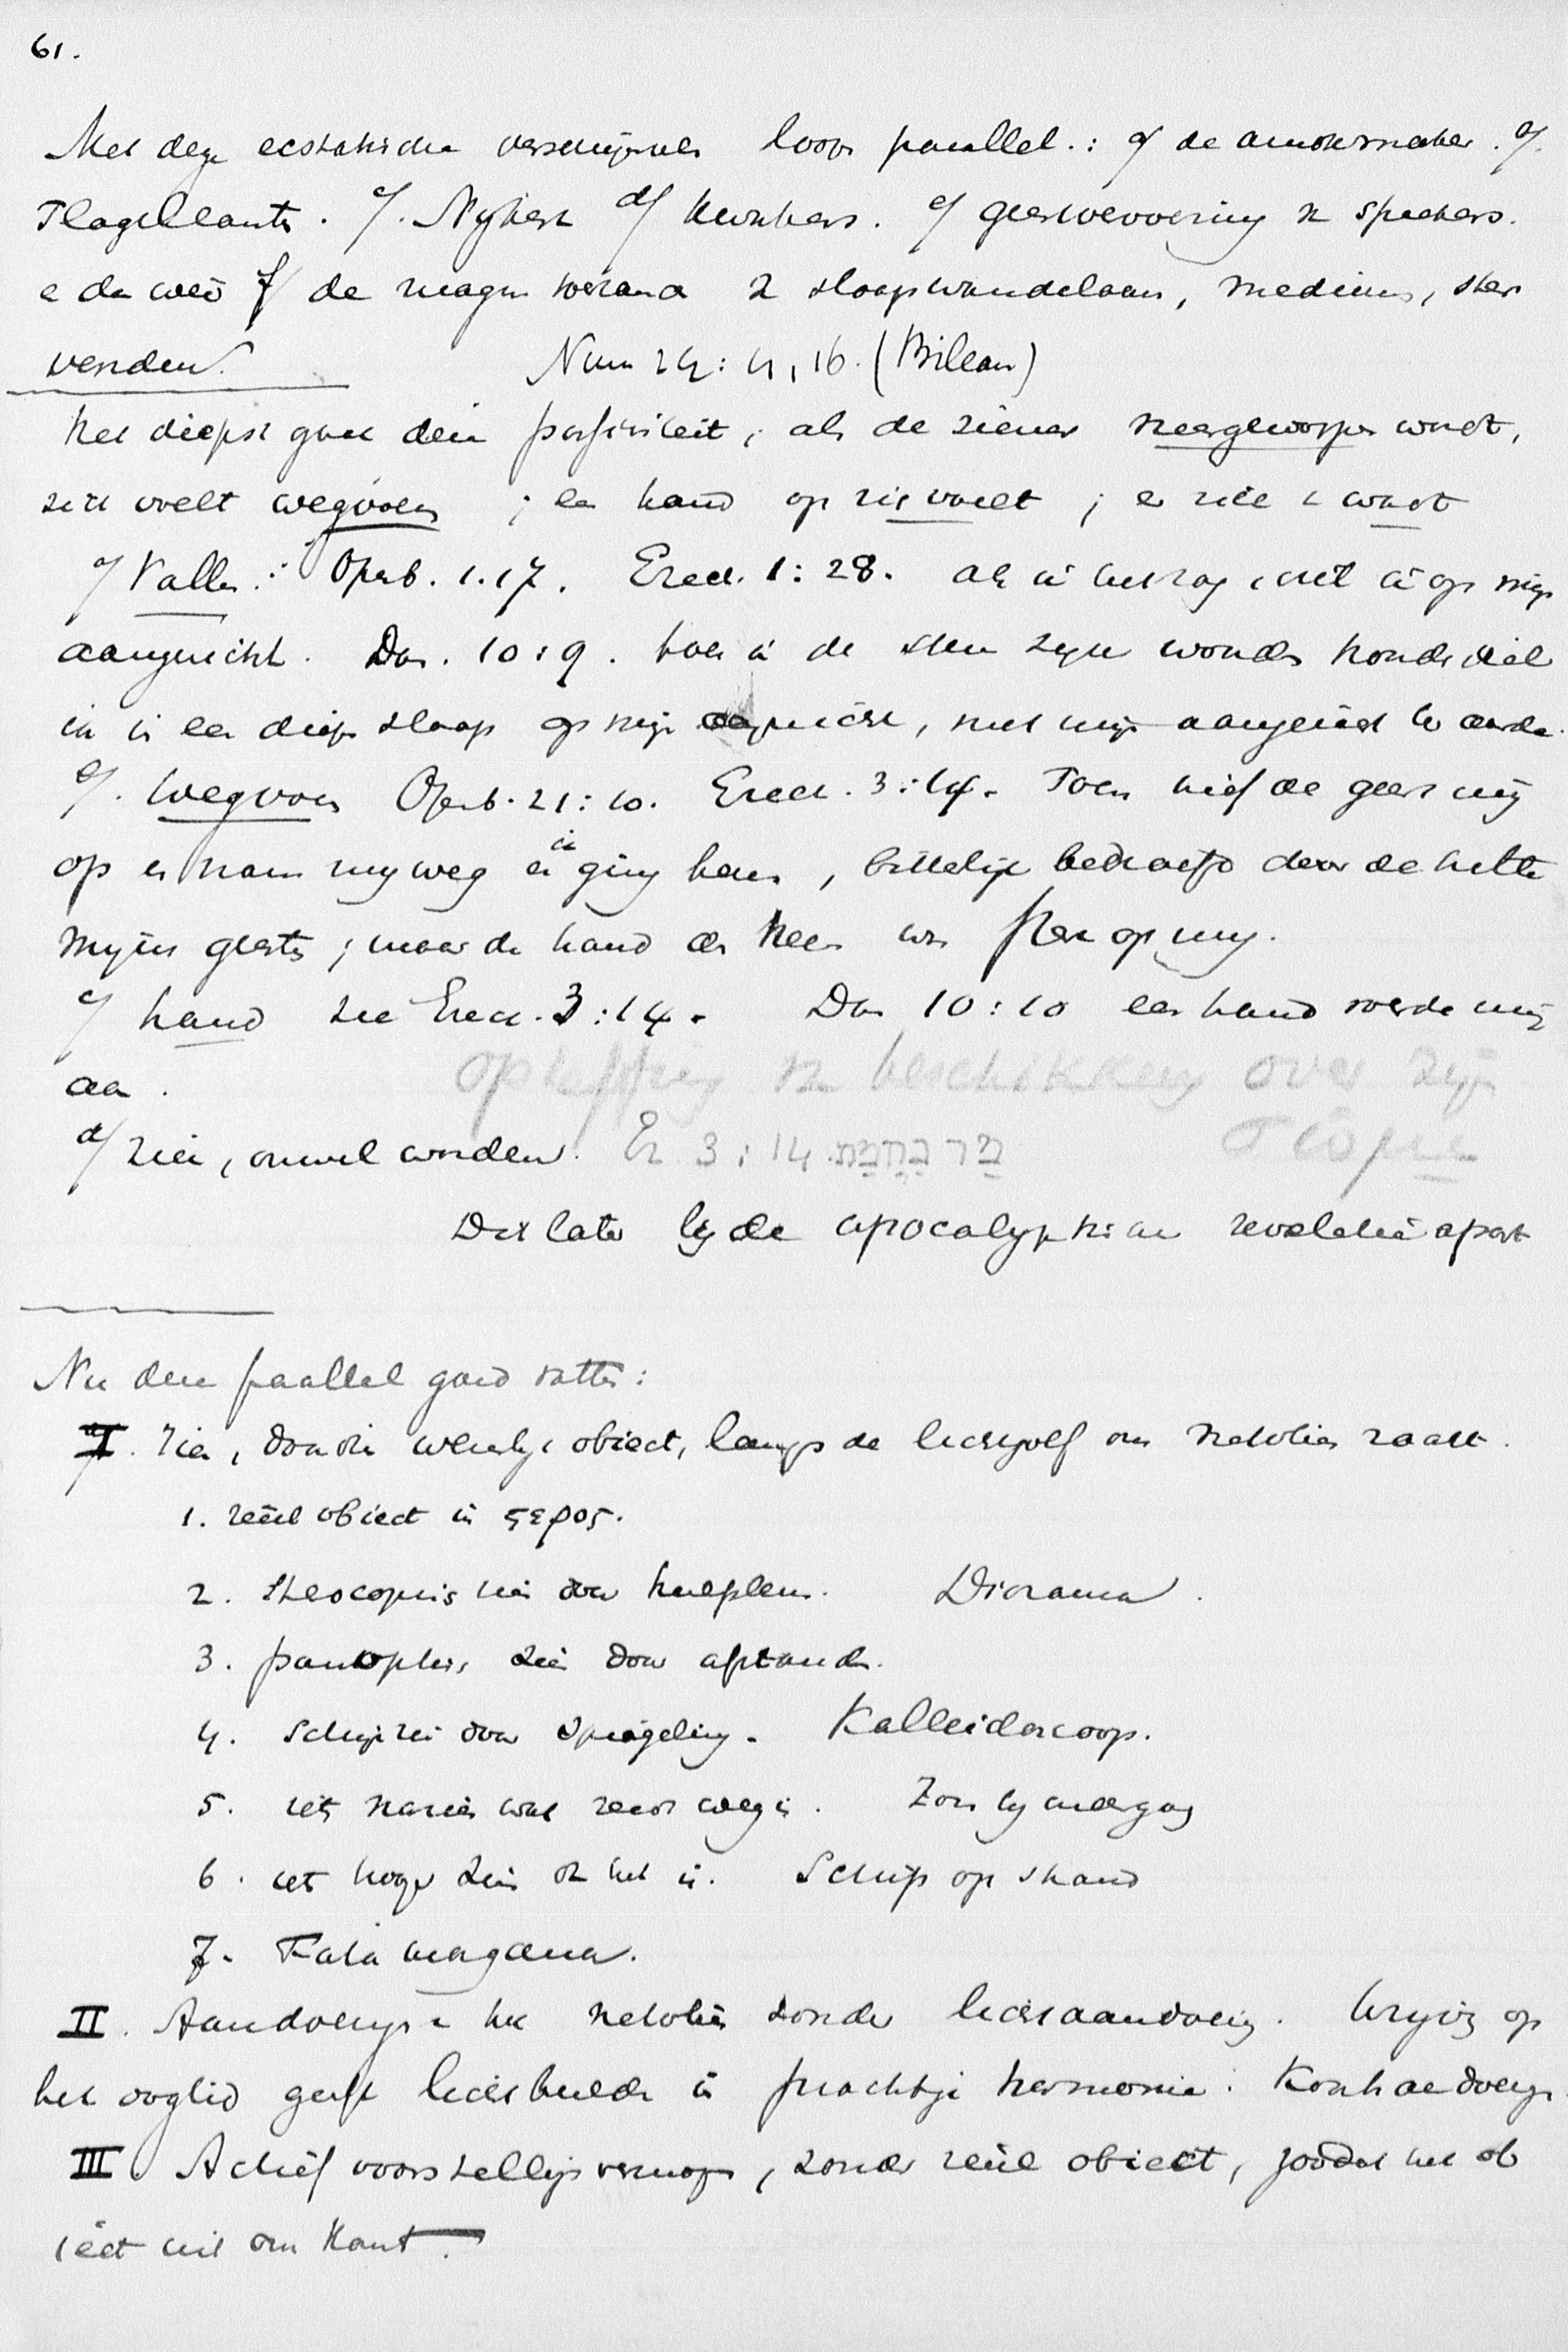 61.
Met deze ecstatische verschijnselen loopt parallel.: a/ de amokmaker. b/.
Flagellants. c/. d/ Kwakers. e/ geestvervoering v sprekers.
e de weer f/ de magn toestand v slaapwandelaars, mediums, ster
venden. Num 24:4, 16. (Bileam)
Het diepst gaat deze passiviteit, als de ziener neergeworpen wordt,
zich voelt wegvoeren ; een hand op zich voelt ; en ziek wordt
a/ Vallen: Openb. 1.17. Ezech. 1:28. als ik het zag, viel ik op mijn
aangezicht. Dan. 10:9. toen ik de stem zijner woorden hoorde viel
ik in een diepe slaap op mijn aangezicht, met mijn aangezicht ter aarde.
b/. Wegvoeren Openb. 21:10. Ezech. 3:14. Toen hief de geest mij
op en nam mij weg en ik ging heen, bitterlijk bedroefd door de hitte
mijns geestes; maar de hand des Heeren was sterk op mij.
c/ hand zie Ezech. 3:14. Dan 10:10 een hand roerde mij
aan. opheffing v beschikking over zijn
d/ ziek, onwel worden. Ez 3:14.
Dit later bij de apocalyptische revelatie apart
Nu deze parallel goed vatten:
I. Zien, doordien werkelijk object, langs de lichtgolf ons netvlies raakt.
1. reëel object in
2. zien door hulplens. Diorama.
3. zien door afstand.
4. Schijn zien door spiegeling. Kalleidoscoop.
5. iets nazien wat reeds weg is. Zon bij ondergang
6. iets hoger zien dan het is. Schip op strand
7. Fata morgana.
II. Aandoening v het netvlies zonder lichtaandoening. Wrijving op
het ooglid geeft lichtbeelden in prachtige harmonie.
III. Actief voorstellingsvermogen, zonder reëel object, zoodat het ob
iect uit ons komt.